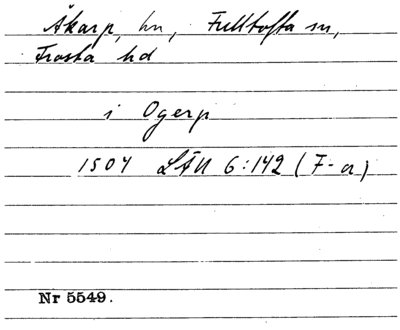 Åkarp, hn, Fulltofta sn,
Frosta hd
i Ogerp
1504 LÄU 6:142 (F-a)
Nr 5549.